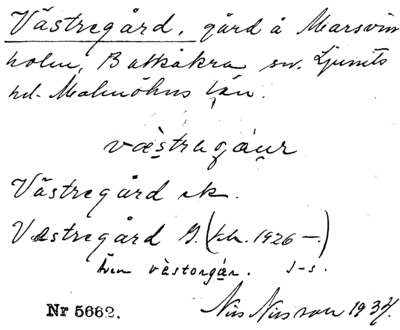 Västregård, gård å Marsvin
holm, Balkåkra sn. Ljunits
hd. Malmöhus län.
væstragáur
Västregård ek.
Västregård G. (kb. 1926 —)
även vèstorgár. J-s.
Nr 5662. Nils Nilsson 1937.